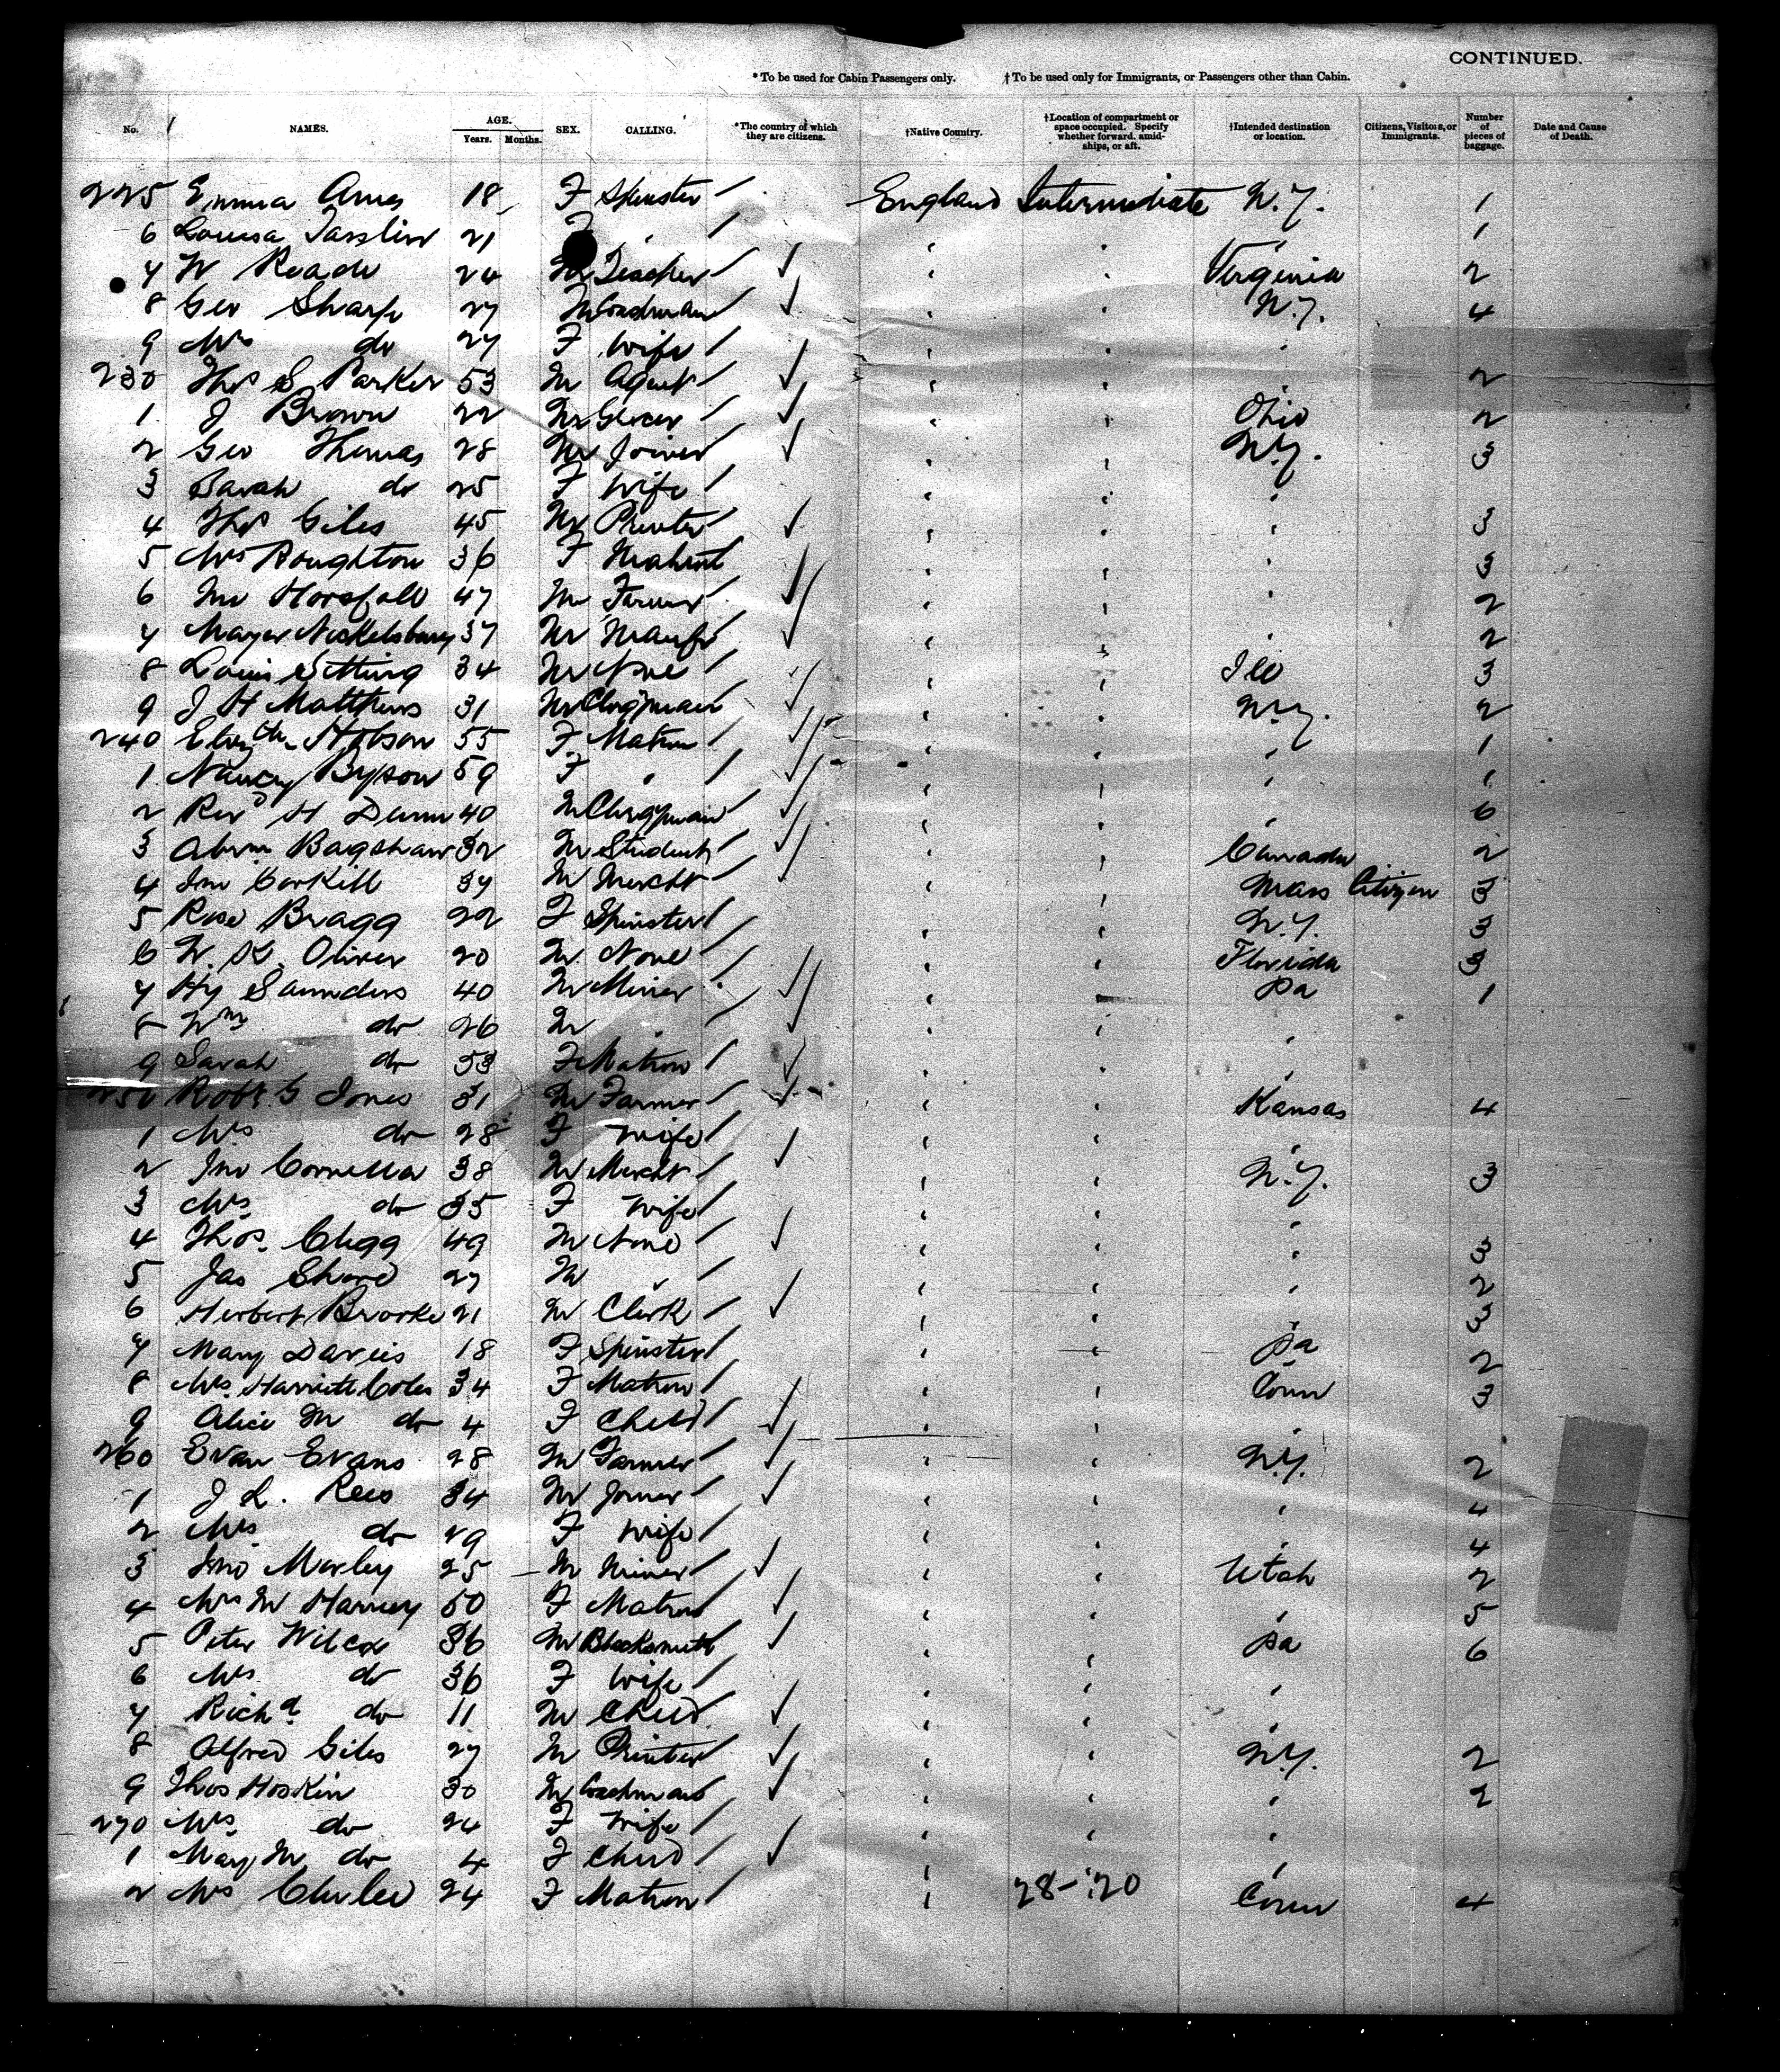 CONTINUED.
* To be used for Cabin Passengers only. † To be used only for Immigrants, or Passengers other than Cabin.
No. NAMES. AGE. Years. Months. SEX. CALLING. *The country of which they are citizens. †Native Country. †Location of compartment or space occupied. Specify whether forward, amidships, or aft. †Intended destination or location. Citizens, Visitors, or Immigrants. Number of pieces of baggage. Date and Cause of Death.
225 Emma 18 F Spinster England Intermediate N.Y. 1
6 Louisa 21 " 1
7 W Reade 24 M Teacher " " Virginia 2
8 Geo Sharpe 27 M Coachman " " N.Y. 4
9 Mrs do 27 F Wife " " "
230 Thos S Parker 53 M Agent " " " 2
1 J Brown 22 M Grocer " " Ohio 2
2 Geo Thomas 28 M Joiner " " N.Y. 3
3 Sarah do 25 F Wife " " "
4 Thos Giles 45 M Printer " " " 3
5 Mrs Houghton 36 F " " " 3
6 Jno Horsfall 47 M Farmer " " " 2
7 Mayer Nickelsburg 37 M Manufr " " " 2
8 Louis Setting 34 M None " " Ill 3
9 J H Matthews 31 M Clergyman " " N.Y. 2
240 Elizth Hobson 55 F Matron " " " 1
1 Nancy 59 F " " " " 1
2 Revd H Dunn 40 M Clergyman " " " 6
3 Abrm Bagshaw 32 M Student " " Canada 2
4 Jno Corkill 37 M Mercht " " Mass Citizen 3
5 Rose Bragg 22 F Spinster " " N.Y. 3
6 W. K. Oliver 20 M None " " Florida 3
7 Hy Saunders 40 M Miner " " Pa 1
8 Wm do 26 M " " " "
9 Sarah do 53 F Matron " " "
250 Robt G Jones 31 M Farmer " " Kansas 4
1 Mrs do 28 F Wife " " "
2 Jno 38 M Mercht " " N.Y. 3
3 Mrs do 35 F Wife " " "
4 Thos. Clegg 49 M None " " " 3
5 Jas Shore 27 M " " " " 2
6 Herbert Brooke 21 M Clerk " " " 3
7 Mary Davies 18 F Spinster " " Pa 2
8 Mrs. Harriett Coles 34 F Matron " " Conn 3
9 Alice M do 4 F Child " " "
260 Evan Evans 28 M Farmer " " N.Y. 2
1 J L. Rees 34 M Joiner " " " 4
2 Mrs do 29 F Wife " " " 4
3 Jno Morley 25 M Miner " " Utah 2
4 Mrs M Harvey 50 F Matron " " " 5
5 Peter Wilcox 36 M Blacksmith " " Pa 6
6 Mrs do 36 F Wife " " "
7 Richd do 11 M Child " " "
8 Alfred Giles 27 M Printer " " N.Y. 2
9 Thos Hoskin 30 M Coachman " " " 2
270 Mrs. do 24 F Wife " " "
1 May M do 4 F Child " "
2 Mrs 24 F Matron " 28-'20 Conn 4